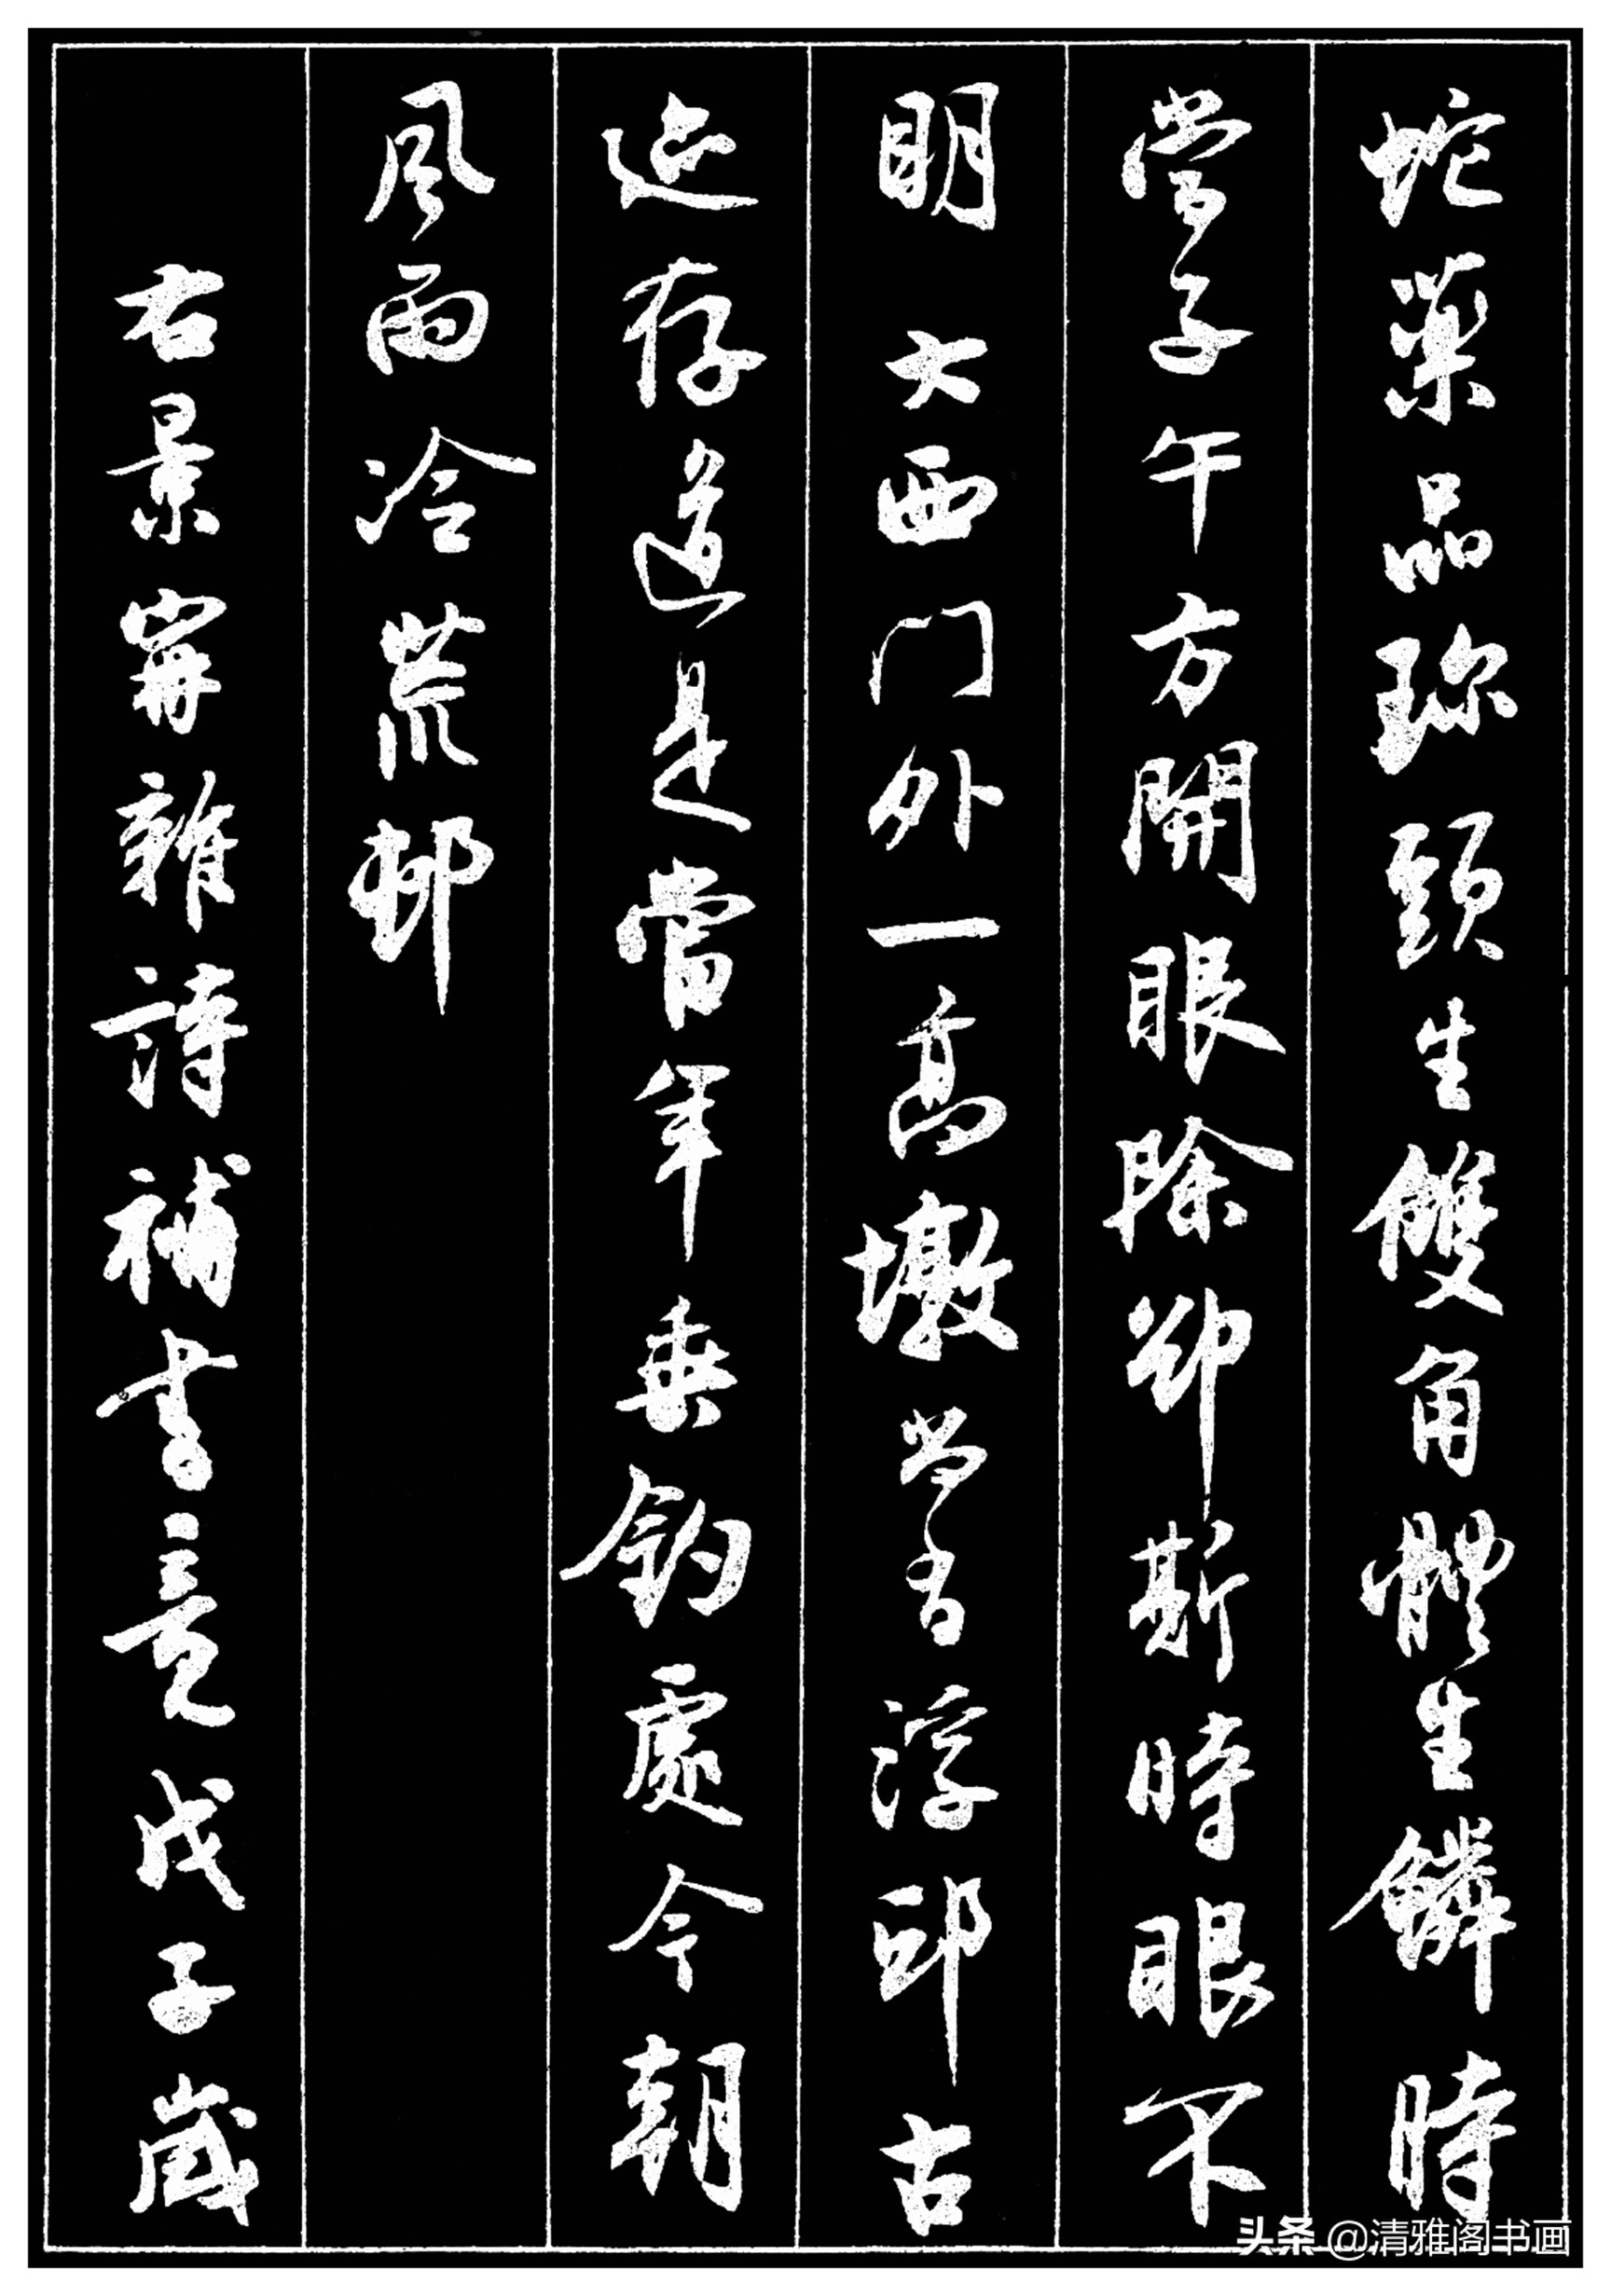 蛇药品珍頭生雙角體生鱗時
當子午方開眼除卻斯時眼不
明 大西门外一髙墩學者浮邱古
迹存道是當年垂釣處今朝
風雨冷荒邨
右景甯雜詩補書竟戊子歲
头条 @清雅阁书画